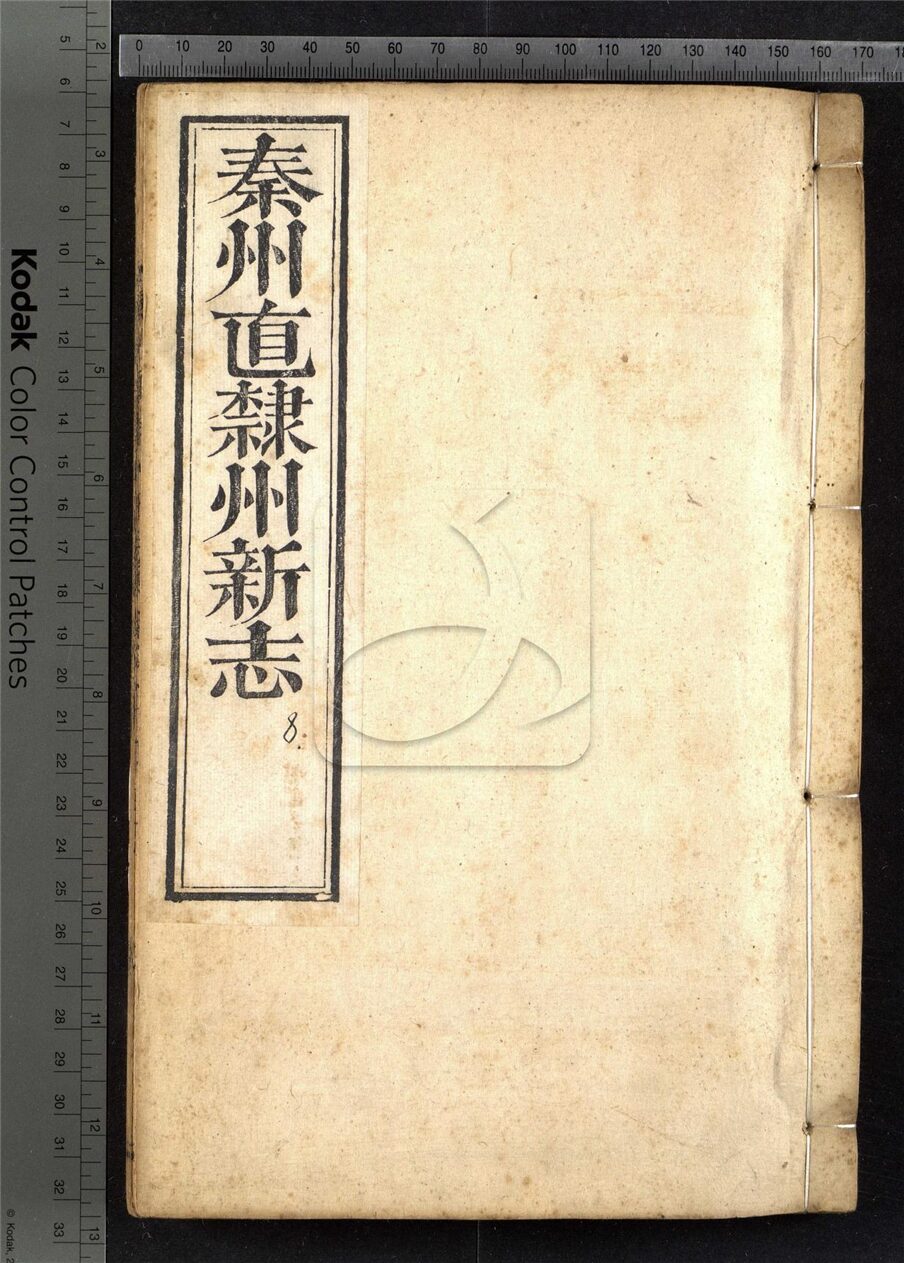 秦州直隸州新志
8.
0 10 20 30 40 50 60 70 80 90 100 110 120 130 140 150 160 170
Kodak Color Control Patches
5 6 7 8 9 10 11 12 13 14 15 16 17 18 19 20 21 22 23 24 25 26 27 28 29 30 31 32 33
2 3 4 5 6 7 8 9 10 11 12 13
© Kodak,